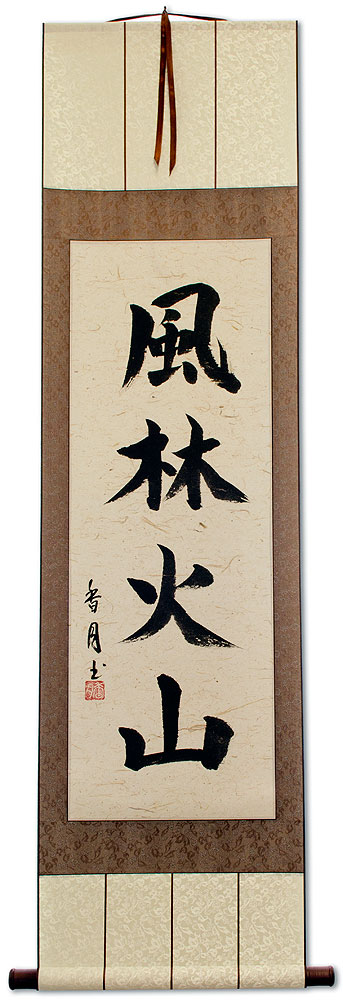 風林火山
香月书